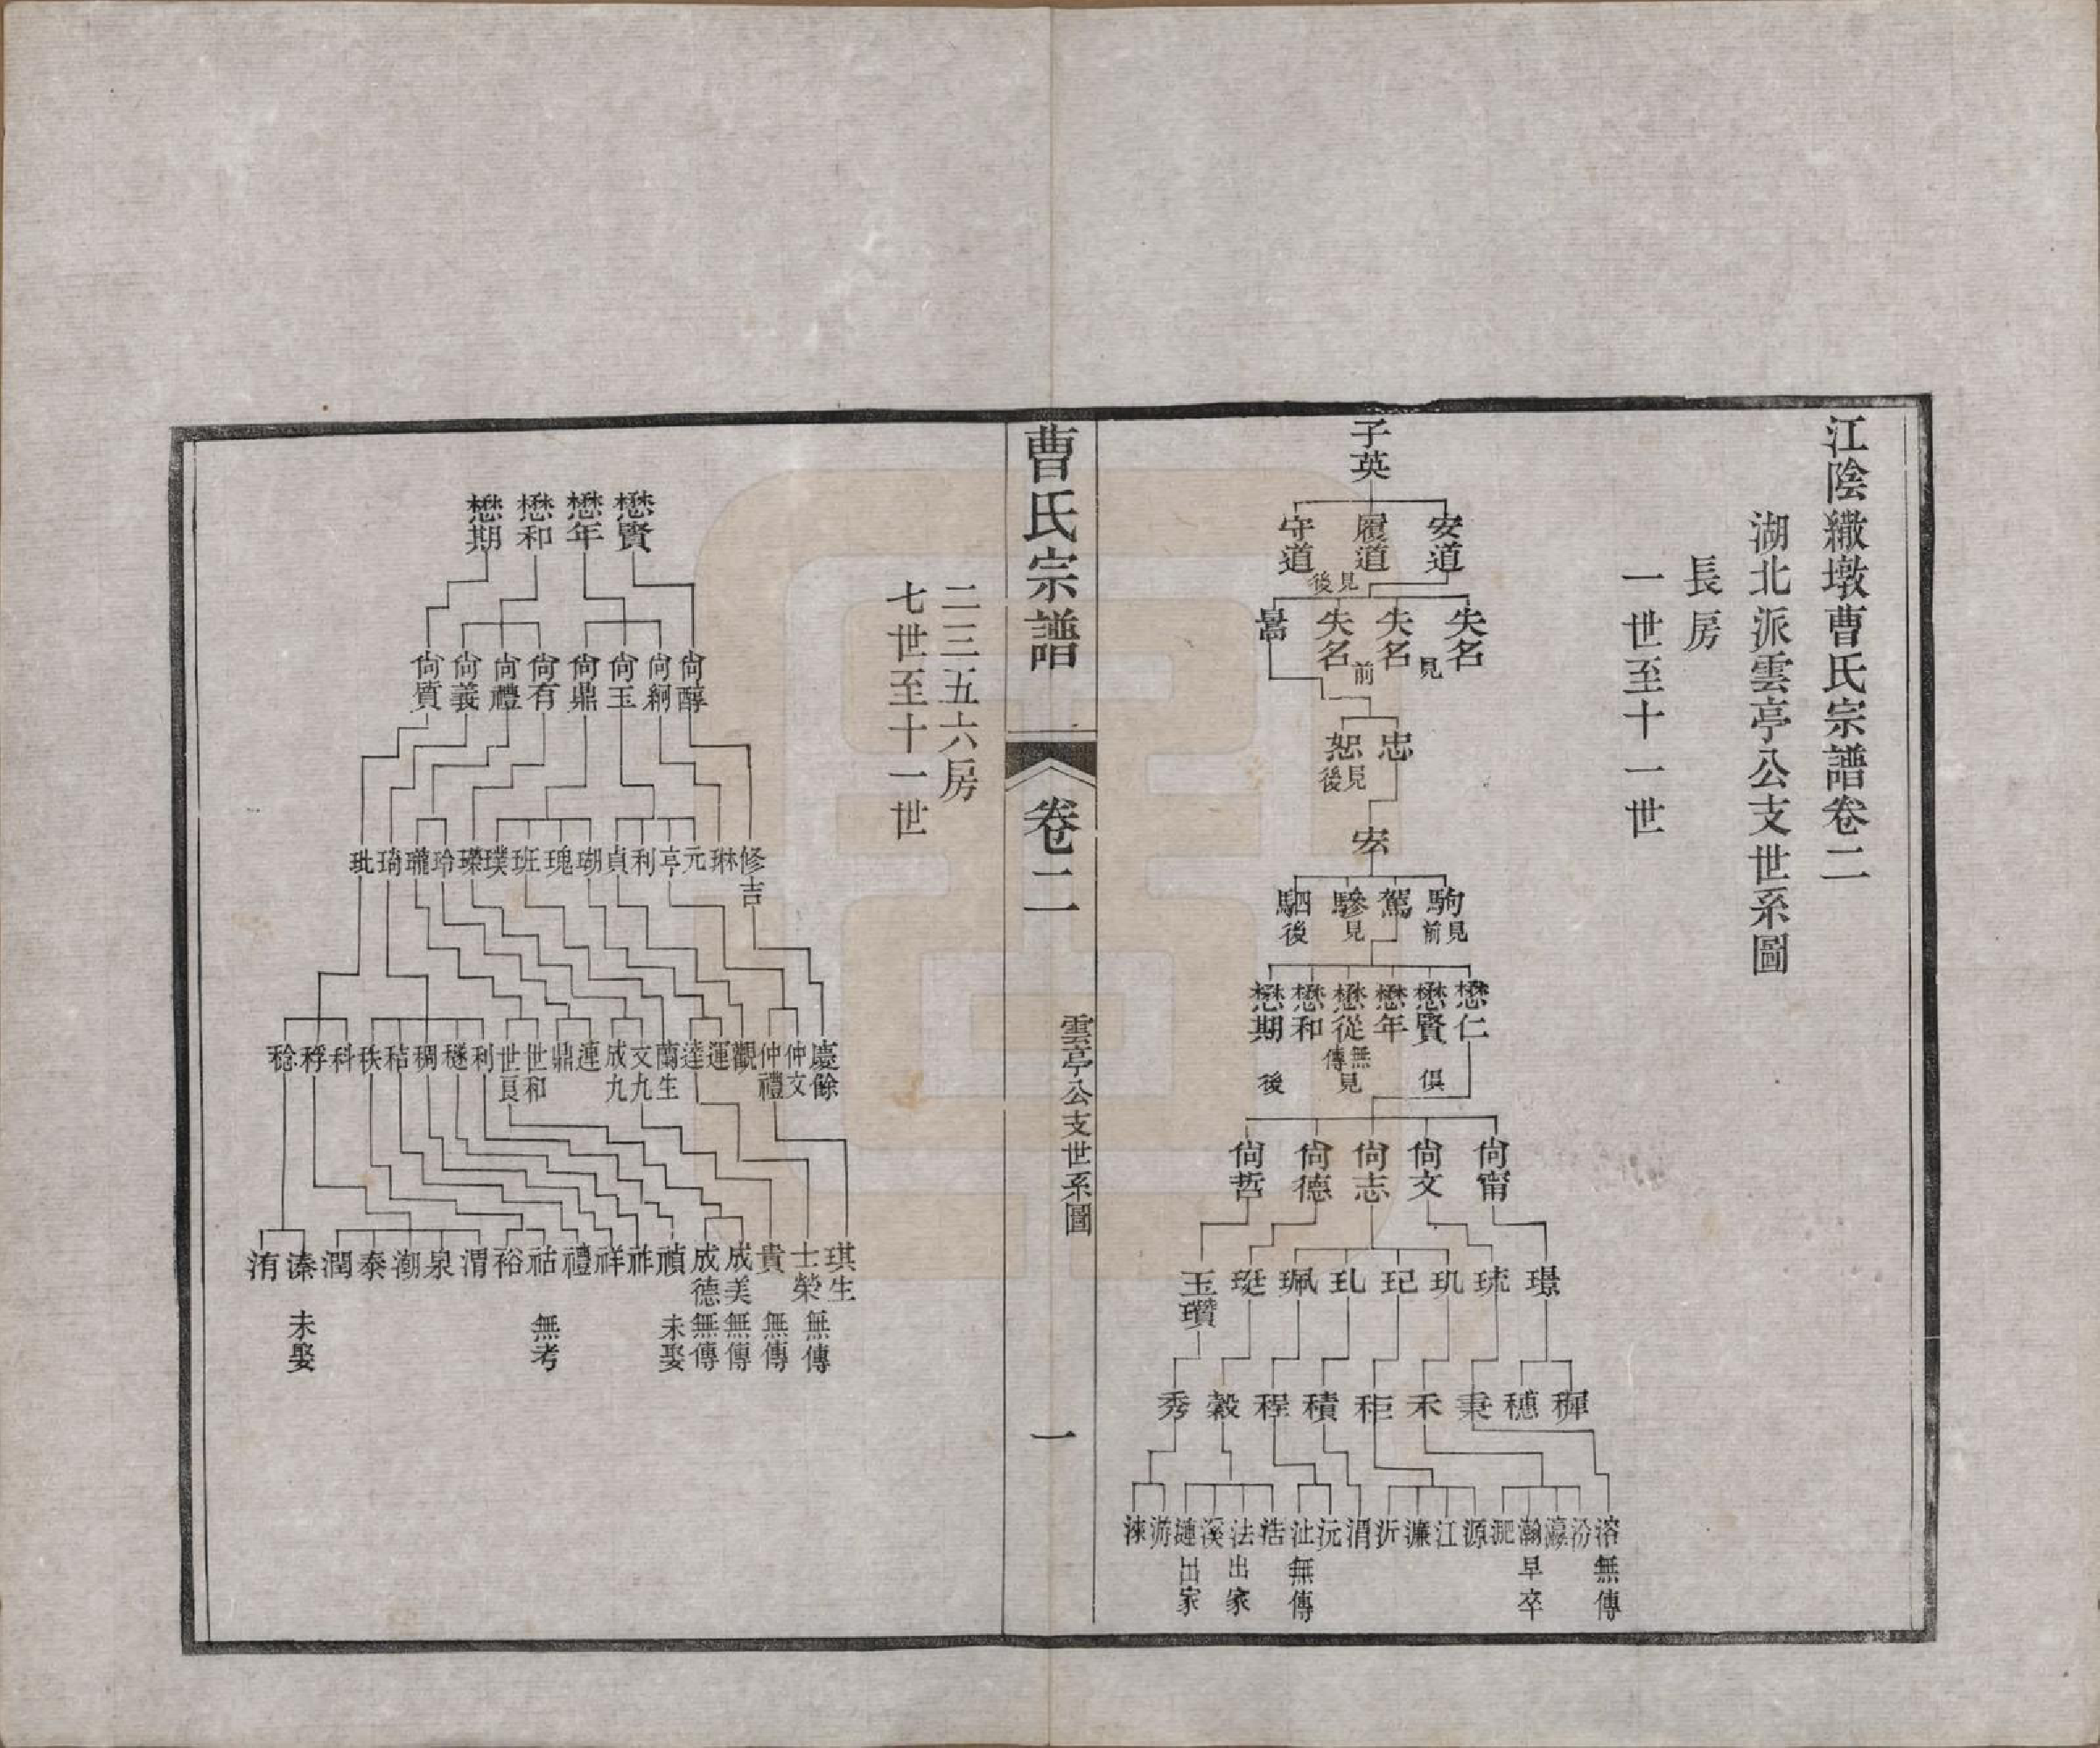 江陰繖墩曹氏宗譜卷二
湖北派雲亭公支世系圖
長房
一世至十一世
子英
安道 履道 守道
見後
失名 失名 失名 暠
見 前
忠 恕
見後
宏
駒 駕 驂 駟
見前 見 後
懋仁 懋賢 懋年 懋從 懋和 懋期
無傳
俱 見 後
尙甯 尙文 尙志 尙德 尙哲
璟 琉 玑 玘 玌 珮 珽 玉瓚
穉 穗 秉 禾 秬 積 程 穀 秀
溶 汾 瀛 瀚 淝 源 江 濂 沂 渭 沅 沚 浩 法 溪 漣 游 涑
無傳 早卒 無傳 出家 出家
曹氏宗譜
卷二
雲亭公支世系圖
一
二三五六房
七世至十一世
懋賢 懋年 懋和 懋期
尙醇 尙絅 尙玉 尙鼎 尙有 尙禮 尙義 尙質
修吉 琳 元 亭 利 貞 瑚 瑰 班 璞 瓅 玲 瓏 琦 玭
慶餘 仲文 仲禮 觀 運 達 蘭生 文九 成九 連 鼎 世和 世良 利 穟 稠 秸 秩 科 稃 稔
琪生 士榮 貴 成美 成德 禎 祚 祥 禮 祜 裕 渭 泉 潮 泰 潤 溱 洧
無傳 無傳 無傳 無傳 未娶 無考 未娶